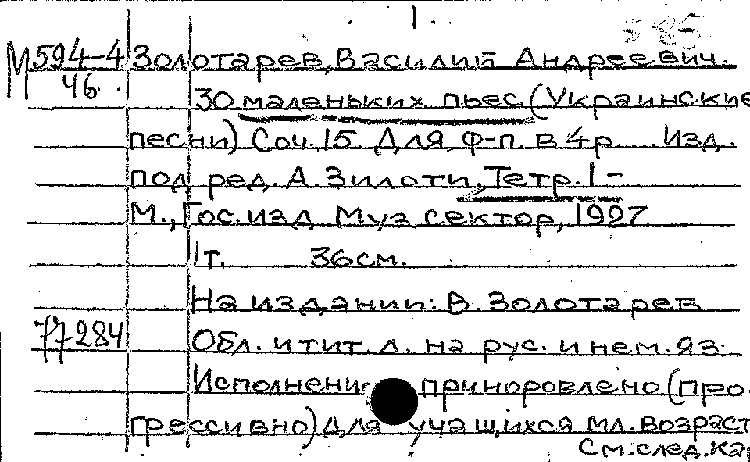 1.
М 594-4 Золотарев, Василий Андреевич.
46. 30 маленьких пьес (Украинские
песни) Соч. 15. Для ф-п. в 4 р. Изд.
под ред. А. Зилоти, Тетр. 1 -
М., Гос. изд. Муз сектор, 1927
1 т. 36 см.
На издании: В. Золотарев
77284 Обл. и тит. л. на рус. и нем. яз.
приноровлено (про-
грессивно) для учащихся мл. возраст
См. след. кар